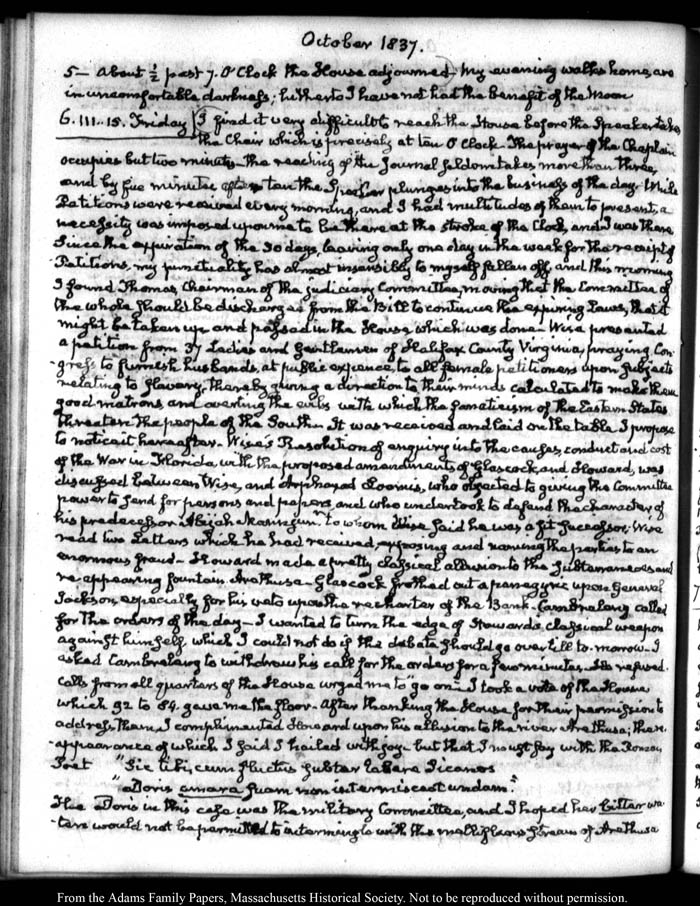 October 1837.
5— About ½ past 7. O'Clock the House adjourned— My evening walks home, are
in uncomfortable darkness; hitherto I have not had the benefit of the Moon
6. III..15. Friday I find it very difficult to reach the House before the Speaker takes
the Chair which is precisely at ten O'Clock. The prayer of the Chaplain
occupies but two minutes— The reading of the Journal seldom takes more than three,
and by five minutes after ten the Speaker plunges into the business of the day. While
Petitions were received every morning, and I had multitudes of them to present, a
necessity was imposed upon me to be there at the stroke of the Clock, and I was there
Since the expiration of the 30 days, leaving only one day in the week for the receipt of
Petitions, my punctuality has almost insensibly to myself fallen off, and this morning
I found Thomas, Chairman of the Judiciary Committee, moving that the Committee of
the whole should be discharged from the Bill to continue the expiring Laws, that it
might be taken up and passed in the House which was done— Wise presented
a petition from 37 Ladies and Gentlemen of Halifax County Virginia, praying Con-
-gress to furnish husbands, at public expence, to all female petitioners upon subjects
relating to slavery, thereby giving a direction to their minds calculated to make them
good matrons, and averting the evils with which the fanaticism of the Eastern States
threaten the people of the South. It was received and laid on the table. I propose
to notice it hereafter— Wise's Resolution of enquiry into the causes, conduct and cost
of the War in Florida, with the proposed amendments of Glascock, and Howard, was
discussed between Wise, and Arphaxad Loomis, who objected to giving the Committee
power to send for persons and papers, and who undertook to defend the character of
his predecessor Abijah Mann jun.r to whom Wise said he was a fit successor. Wise
read two Letters which he had received, exposing and naming the parties to an
enormous fraud— Howard made a pretty classical allusion to the subterraneous and
re-appearing fountain Arethusa— Glascock frothed out a panegyric upon General
Jackson, especially for his veto upon the recharter of the Bank— Cambreleng called
for the orders of the day— I wanted to turn the edge of Howard's classical weapon
against himself, which I could not do if the debate should go over till to-morrow. I
asked Cambreleng to withdraw his call for the orders for a few minutes. He refused.
Calls from all quarters of the House urged me to "go on" I took a vote of the House
which 92 to 84. gave me the floor— After thanking the House for their permission to
address them, I complimented Howard upon his allusion to the river Arethusa; the re-
-appearance of which I said I hailed with joy— but that I must say with the Roman
Poet "Sic tibi, cum fluctus subter labere Sicanos
"Doris amara suam non intermisceat undam."
The Doris in this case was the military Committee, and I hoped her bitter wa-
-ters would not be permitted to intermingle with the mellifluous stream of Arethusa
From the Adams Family Papers, Massachusetts Historical Society. Not to be reproduced without permission.